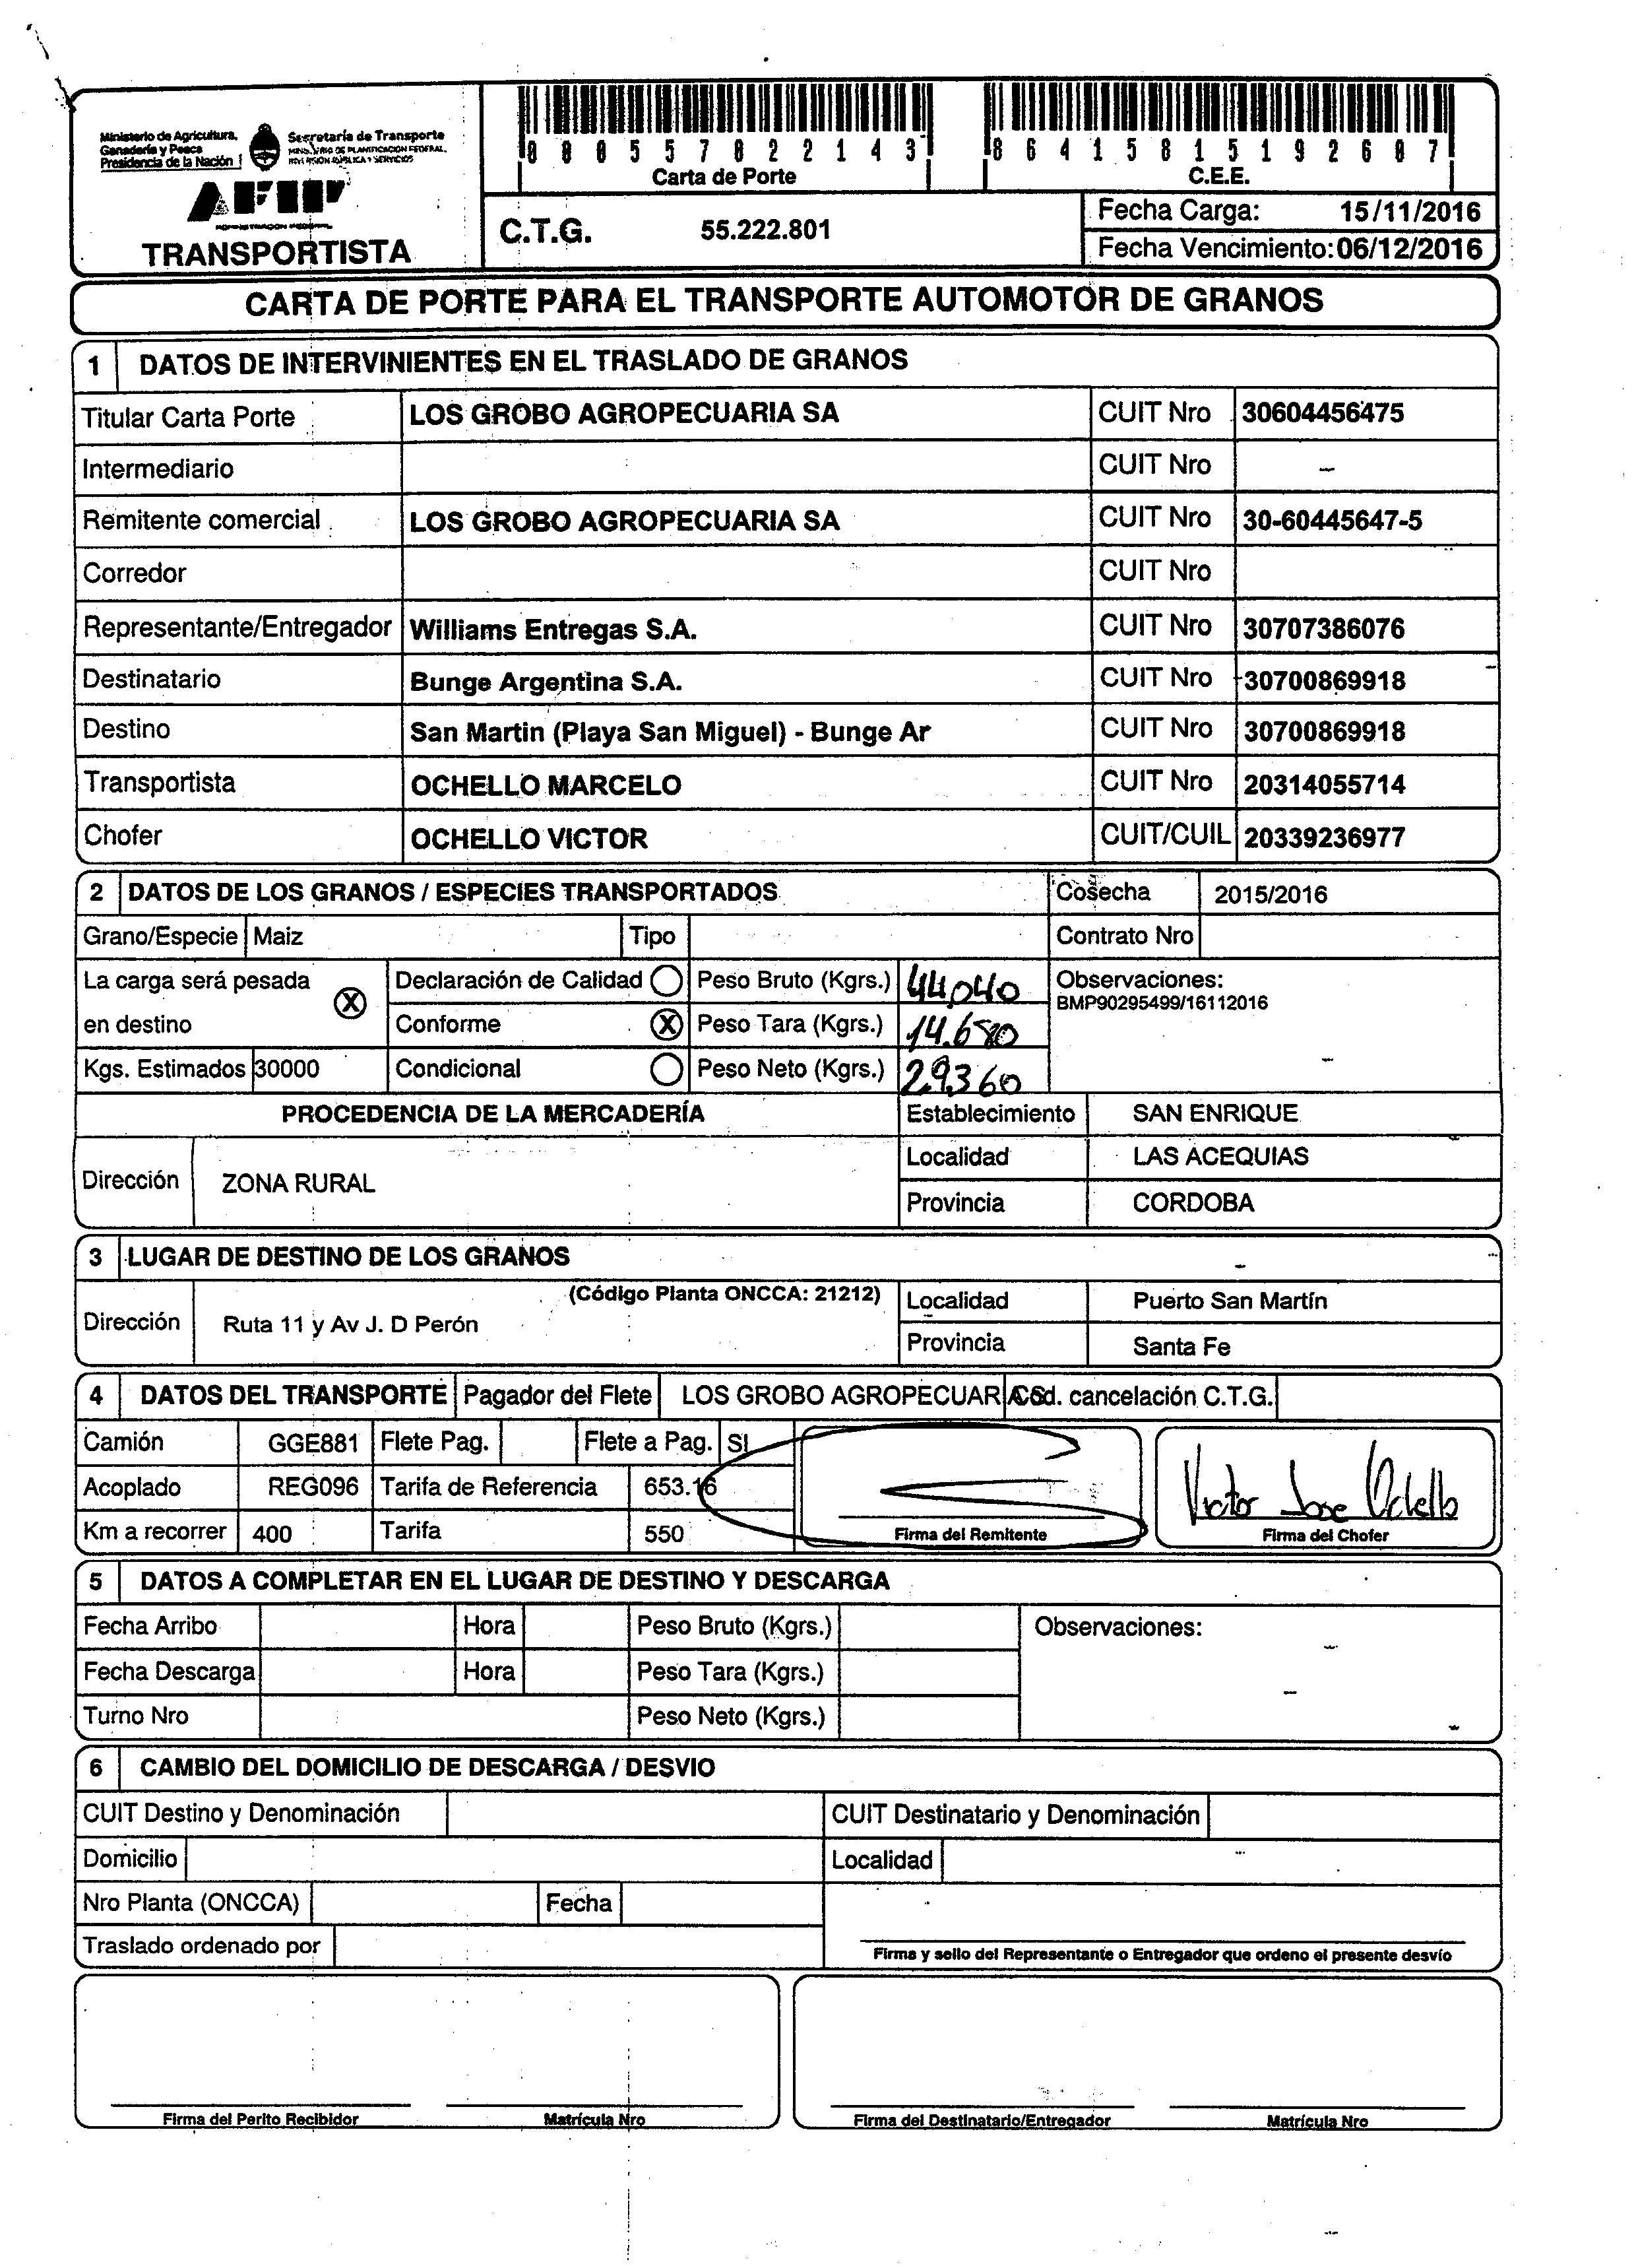 Ministerio de Agricultura,
Ganadería y Pesca
Presidencia de la Nación
Secretaría de Transporte
AFIP
TRANSPORTISTA
Carta de Porte
8 6 4 1 5 8 1 5 1 9 2 6 0 7
C.E.E.
C.T.G. 55.222.801
Fecha Carga: 15/11/2016
Fecha Vencimiento: 06/12/2016
CARTA DE PORTE PARA EL TRANSPORTE AUTOMOTOR DE GRANOS
1 DATOS DE INTERVINIENTES EN EL TRASLADO DE GRANOS
Titular Carta Porte LOS GROBO AGROPECUARIA SA CUIT Nro 30604456475
Intermediario CUIT Nro -
Remitente comercial LOS GROBO AGROPECUARIA SA CUIT Nro 30-60445647-5
Corredor CUIT Nro
Representante/Entregador Williams Entregas S.A. CUIT Nro 30707386076
Destinatario Bunge Argentina S.A. CUIT Nro 30700869918
Destino San Martin (Playa San Miguel) - Bunge Ar CUIT Nro 30700869918
Transportista OCHELLO MARCELO CUIT Nro 20314055714
Chofer OCHELLO VICTOR CUIT/CUIL 20339236977
2 DATOS DE LOS GRANOS / ESPECIES TRANSPORTADOS Cosecha 2015/2016
Grano/Especie Maiz Tipo Contrato Nro
La carga será pesada X Declaración de Calidad Peso Bruto (Kgrs.) 44,040 Observaciones:
BMP90295499/16112016
en destino Conforme X Peso Tara (Kgrs.) 14.680
Kgs. Estimados 30000 Condicional Peso Neto (Kgrs.) 29.360
PROCEDENCIA DE LA MERCADERÍA Establecimiento SAN ENRIQUE
Dirección ZONA RURAL Localidad LAS ACEQUIAS
Provincia CORDOBA
3 LUGAR DE DESTINO DE LOS GRANOS
(Código Planta ONCCA: 21212) Localidad Puerto San Martín
Dirección Ruta 11 y Av J. D Perón
Provincia Santa Fe
4 DATOS DEL TRANSPORTE Pagador del Flete LOS GROBO AGROPECUARIA SA Cód. cancelación C.T.G.
Camión GGE881 Flete Pag. Flete a Pag. SI
Acoplado REG096 Tarifa de Referencia 653.16
Victor Jose Ochello
Km a recorrer 400 Tarifa 550 Firma del Remitente Firma del Chofer
5 DATOS A COMPLETAR EN EL LUGAR DE DESTINO Y DESCARGA
Fecha Arribo Hora Peso Bruto (Kgrs.) Observaciones:
Fecha Descarga Hora Peso Tara (Kgrs.)
Turno Nro Peso Neto (Kgrs.)
6 CAMBIO DEL DOMICILIO DE DESCARGA / DESVIO
CUIT Destino y Denominación CUIT Destinatario y Denominación
Domicilio Localidad
Nro Planta (ONCCA) Fecha
Traslado ordenado por Firma y sello del Representante o Entregador que ordeno el presente desvío
Firma del Perito Recibidor Matrícula Nro Firma del Destinatario/Entregador Matrícula Nro